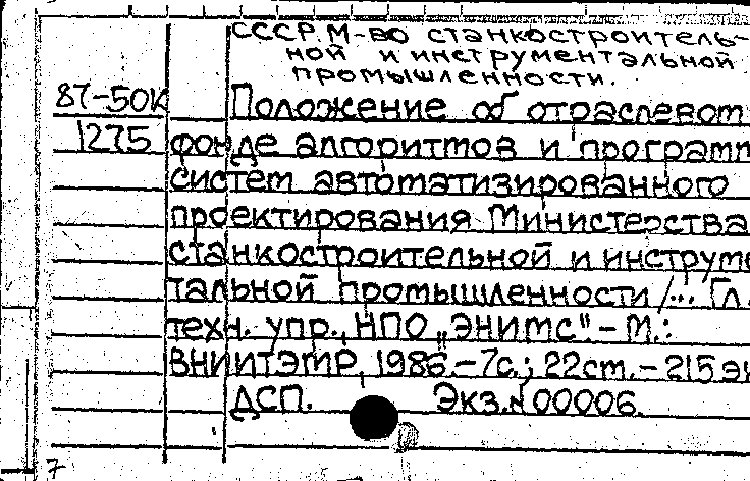 СССР. М-во станкостроитель-
ной и инструментальной
промышленности.
87-50К Положение об отраслевом
1275 фонде алгоритмов и программ
систем автоматизированного
проектирования Министерства
станкостроительной и инструме
тальной промышленности /... Гл.
техн. упр., НПО "ЭНИМС". - М.:
ВНИИТЭМР, 1986. - 7с.; 22см. - 215 эк
ДСП. Экз.№00006.
7